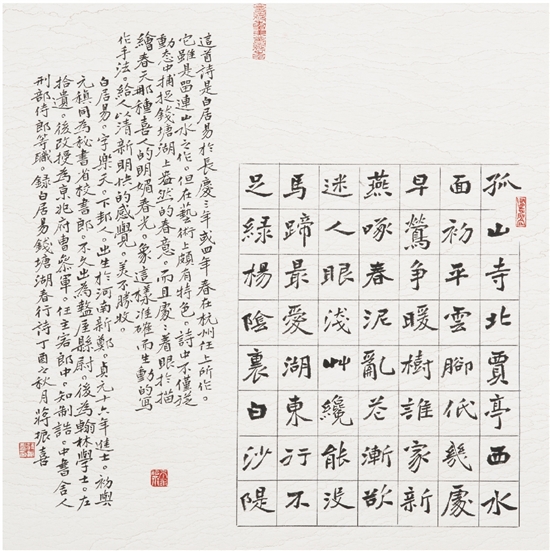 孤山寺北賈亭西水
面初平雲腳低幾處
早鶯爭暖樹誰家新
燕啄春泥亂花漸欲
迷人眼淺艸纔能没
馬蹄最愛湖東行不
足綠楊陰裏白沙隄
這首詩是白居易於長慶三年或四年春在杭州任上所作。
它雖是留連山水之作。但在藝術上頗有特色。詩中不僅從
動态中捕捉錢塘湖上盎然的春意。而且處〻著眼於描
繪春天那種喜人的明媚春光。象這樣准確而生動的寫
作手法。給人以清新明快的感覺。美不勝收。
白居易。字樂天。下邽人。出生於河南新鄭。貞元十六年進士。初與
元稹同為秘書省校書郎。不久出為盩厔縣尉。後為翰林學士。左
拾遺。後改授為京兆府曹參軍。任主客郎中。知制誥。中書舍人
刑部侍郎等職。錄白居易錢塘湖春行詩丁酉之秋月蔣振喜